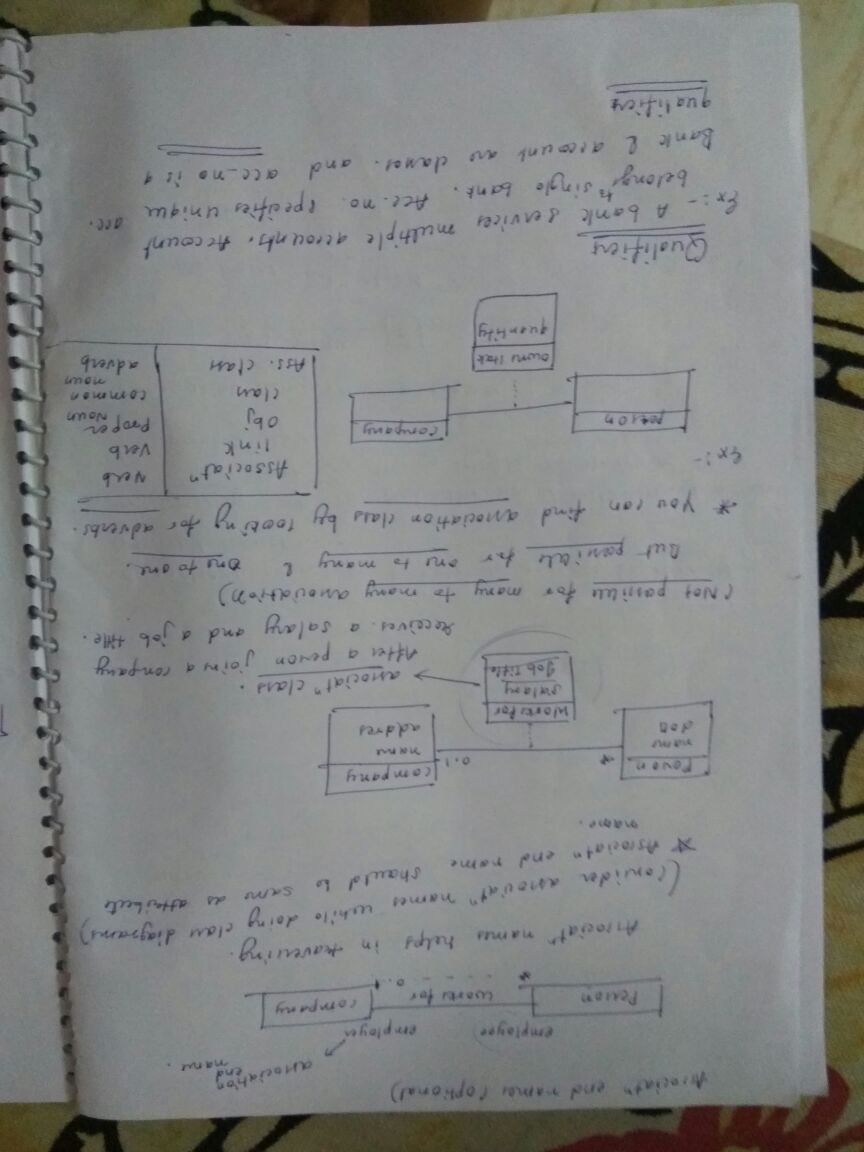 Associatn end names (optional)
association
end
name.
employee employer
Person * works for 0.1 company
Associatn names helps in traversing.
(Consider associatn names while doing class diagrams)
* Associatn end name should be same as attribute
name.
Person
name
DOB
* 0.1
company
name
addres
works for
salary
Job title
associatn class.
After a person joins a company
receives a salary and a job title.
(Not possible for many to many association)
But possible for one to many & one to one.
* You can find association class by looking for adverbs.
Ex:-
person company
owns stock
quantity
Associatn verb
link verb
Obj Proper Noun
class common noun
Ass. class adverb
Qualifiers
Ex:- A bank services multiple accounts. Account
belongs to single bank. Acc. no. specifies unique acc.
Bank & account are classes. and acc-no is a
qualifiers